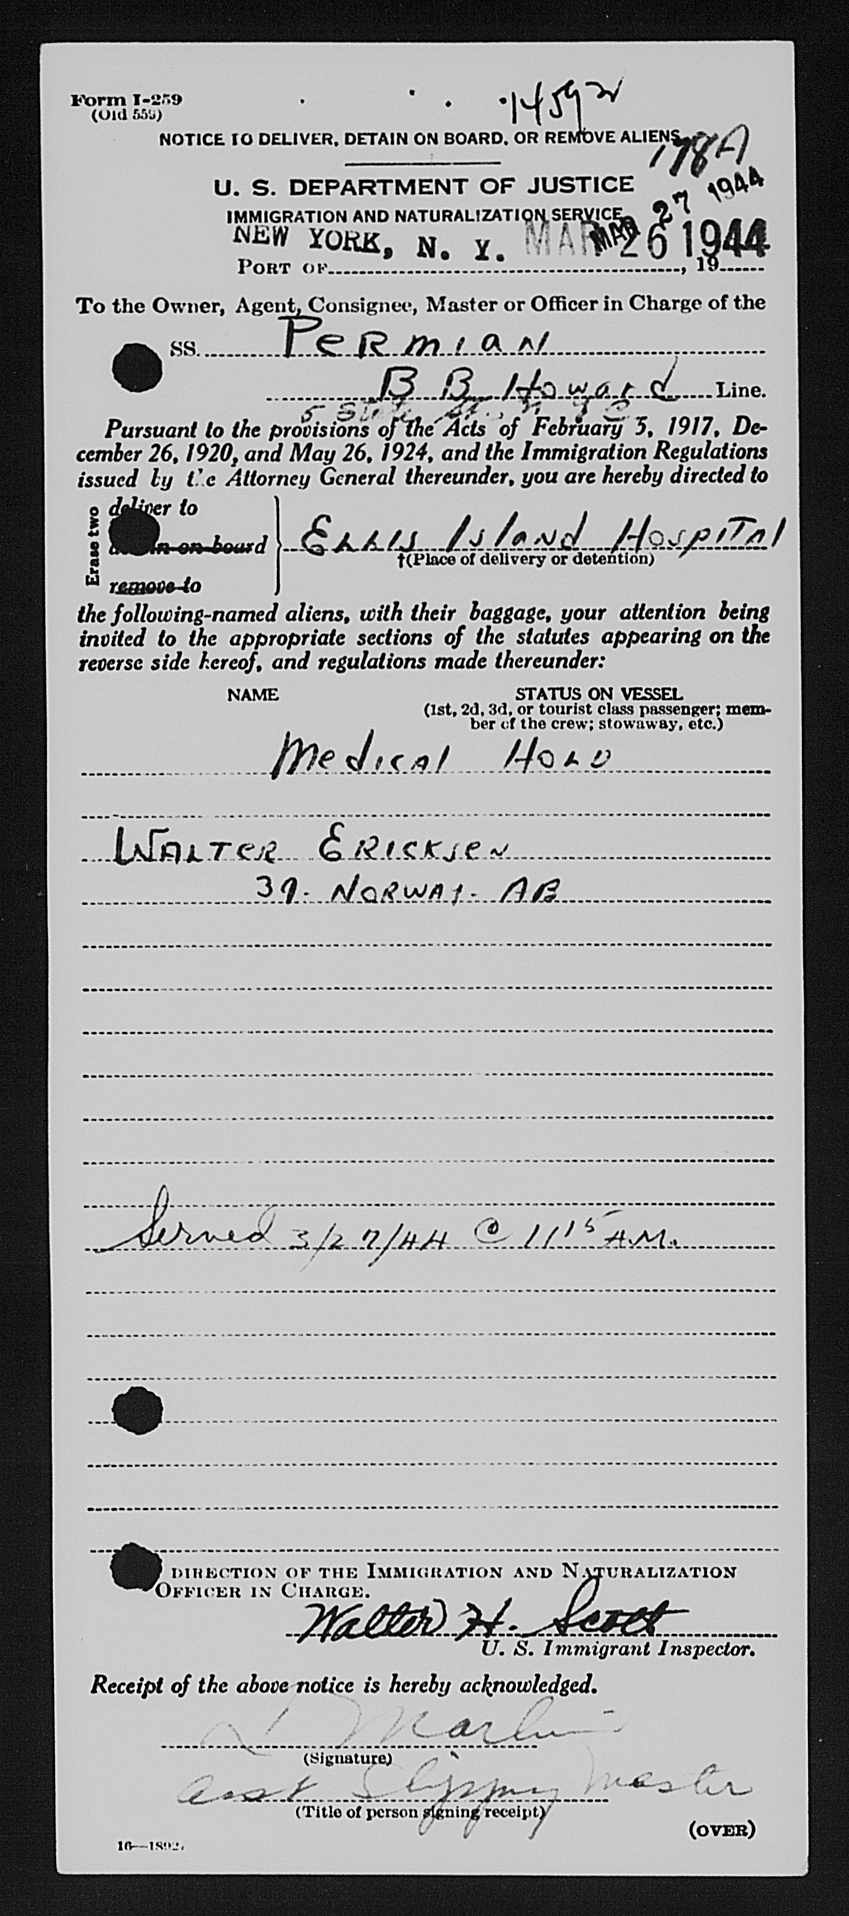 Form I-259
(Old 559)
14592
NOTICE TO DELIVER, DETAIN ON BOARD, OR REMOVE ALIENS
178A
U. S. DEPARTMENT OF JUSTICE
IMMIGRATION AND NATURALIZATION SERVICE
MAR 27 1944
NEW YORK, N. Y. MAR 26 1944
PORT OF , 19
To the Owner, Agent, Consignee, Master or Officer in Charge of the
SS. PERMIAN
B B Howard Line.
5 State St. N Y C
Pursuant to the provisions of the Acts of February 5, 1917, De-
cember 26, 1920, and May 26, 1924, and the Immigration Regulations
issued by the Attorney General thereunder, you are hereby directed to
Erase two
deliver to
on board
remove to
ELLIS Island Hospital
†(Place of delivery or detention)
the following-named aliens, with their baggage, your attention being
invited to the appropriate sections of the statutes appearing on the
reverse side hereof, and regulations made thereunder:
NAME STATUS ON VESSEL
(1st, 2d, 3d, or tourist class passenger; mem-
ber of the crew; stowaway, etc.)
Medical HOLD
WALTER ERICKSEN
39. NORWAY. AB
Served 3/27/44 @ 11 15 A.M.
DIRECTION OF THE IMMIGRATION AND NATURALIZATION
OFFICER IN CHARGE.
Walter H. Scott
U. S. Immigrant Inspector.
Receipt of the above notice is hereby acknowledged.
(Signature)
asst Shipping Master
(Title of person signing receipt)
(OVER)